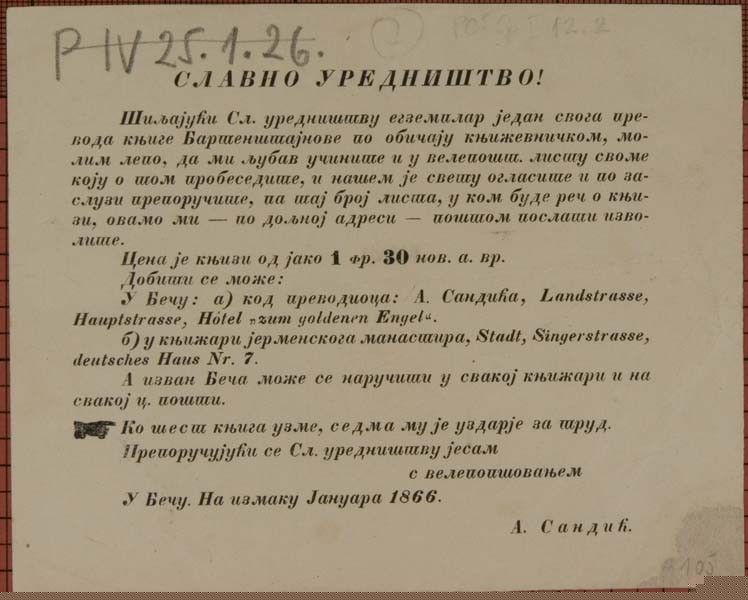 P IV 25.1.26.
СЛАВНО УРЕДНИШТВО!
Шиљајући Сл. уредништву егземилар један свога пре-
вода књиге Бартенштајнове по обичају књижевничком, мо-
лим лепо, да ми љубав учините и у велепошт. листу своме
коју о том пробеседите, и нашем је свету огласите и по за-
слузи препоручите, па тај број листа, у ком буде реч о књи-
зи, овамо ми — по дољној адреси — поштом послати изво-
лите.
Цена је књизи од јако 1 фр. 30 нов. а. вр.
Добити се може:
У Бечу: а) код преводиоца: А. Сандића, Landstrasse,
Hauptstrasse, Hôtel „zum goldenen Engel“.
б) у књижари јерменскога манастира, Stadt, Singerstrasse,
deutsches Haus Nr. 7.
А изван Беча може се наручити у свакој књижари и на
свакој ц. пошти.
Ко шест књига узме, седма му је уздарје за труд.
Препоручујући се Сл. уредништву јесам
с велепоштовањем
У Бечу. На измаку Јануара 1866.
А. Сандић.
105